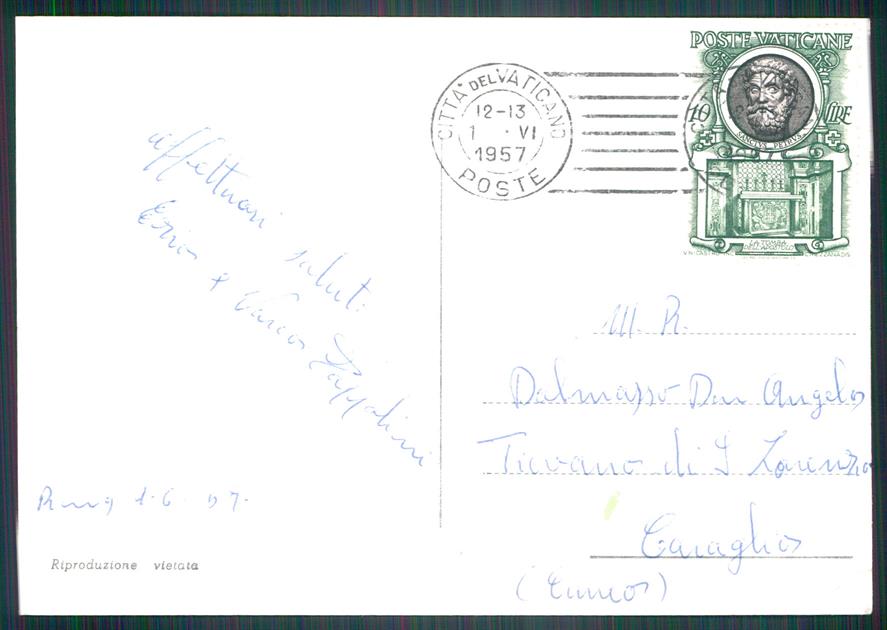 POSTE VATICANE
10 LIRE
SANCTVS PETRVS
LA TOMBA
DELL'APOSTOLO
CITTÀ DEL VATICANO
12-13
1 · VI
1957
POSTE
affettuosi saluti
Enzo e
Roma 1·6·57·
Riproduzione vietata
M. R.
Dalmasso Don Angelo
di S Lorenzo
Caraglio
(Cuneo)